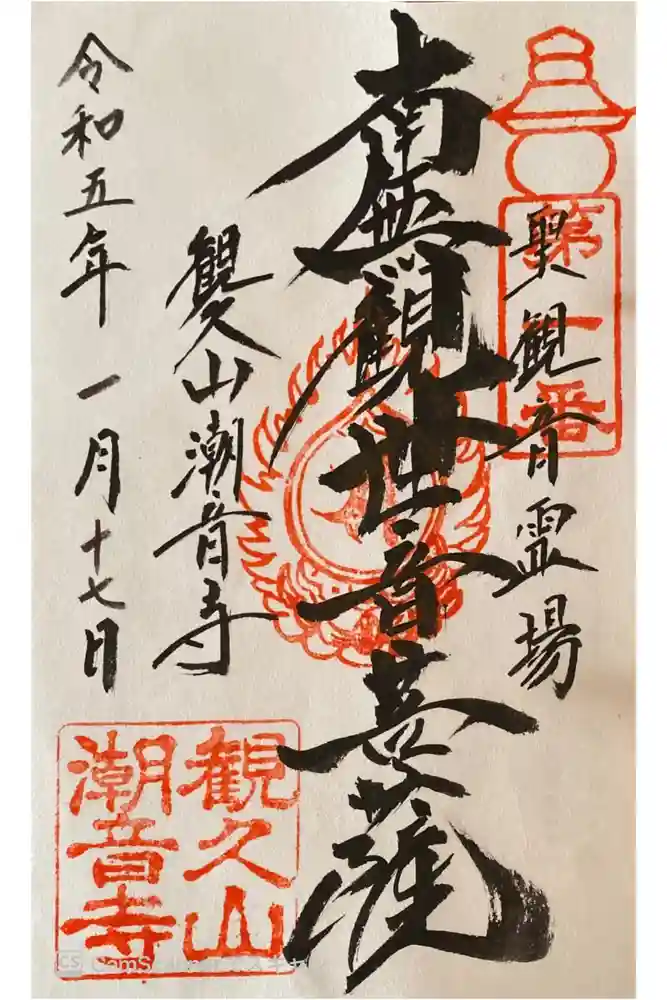 聖観音霊場
第一番
南無観世音菩薩
観久山潮音寺
令和五年一月十七日
観久山
潮音寺
CS CamScanner でスキャン